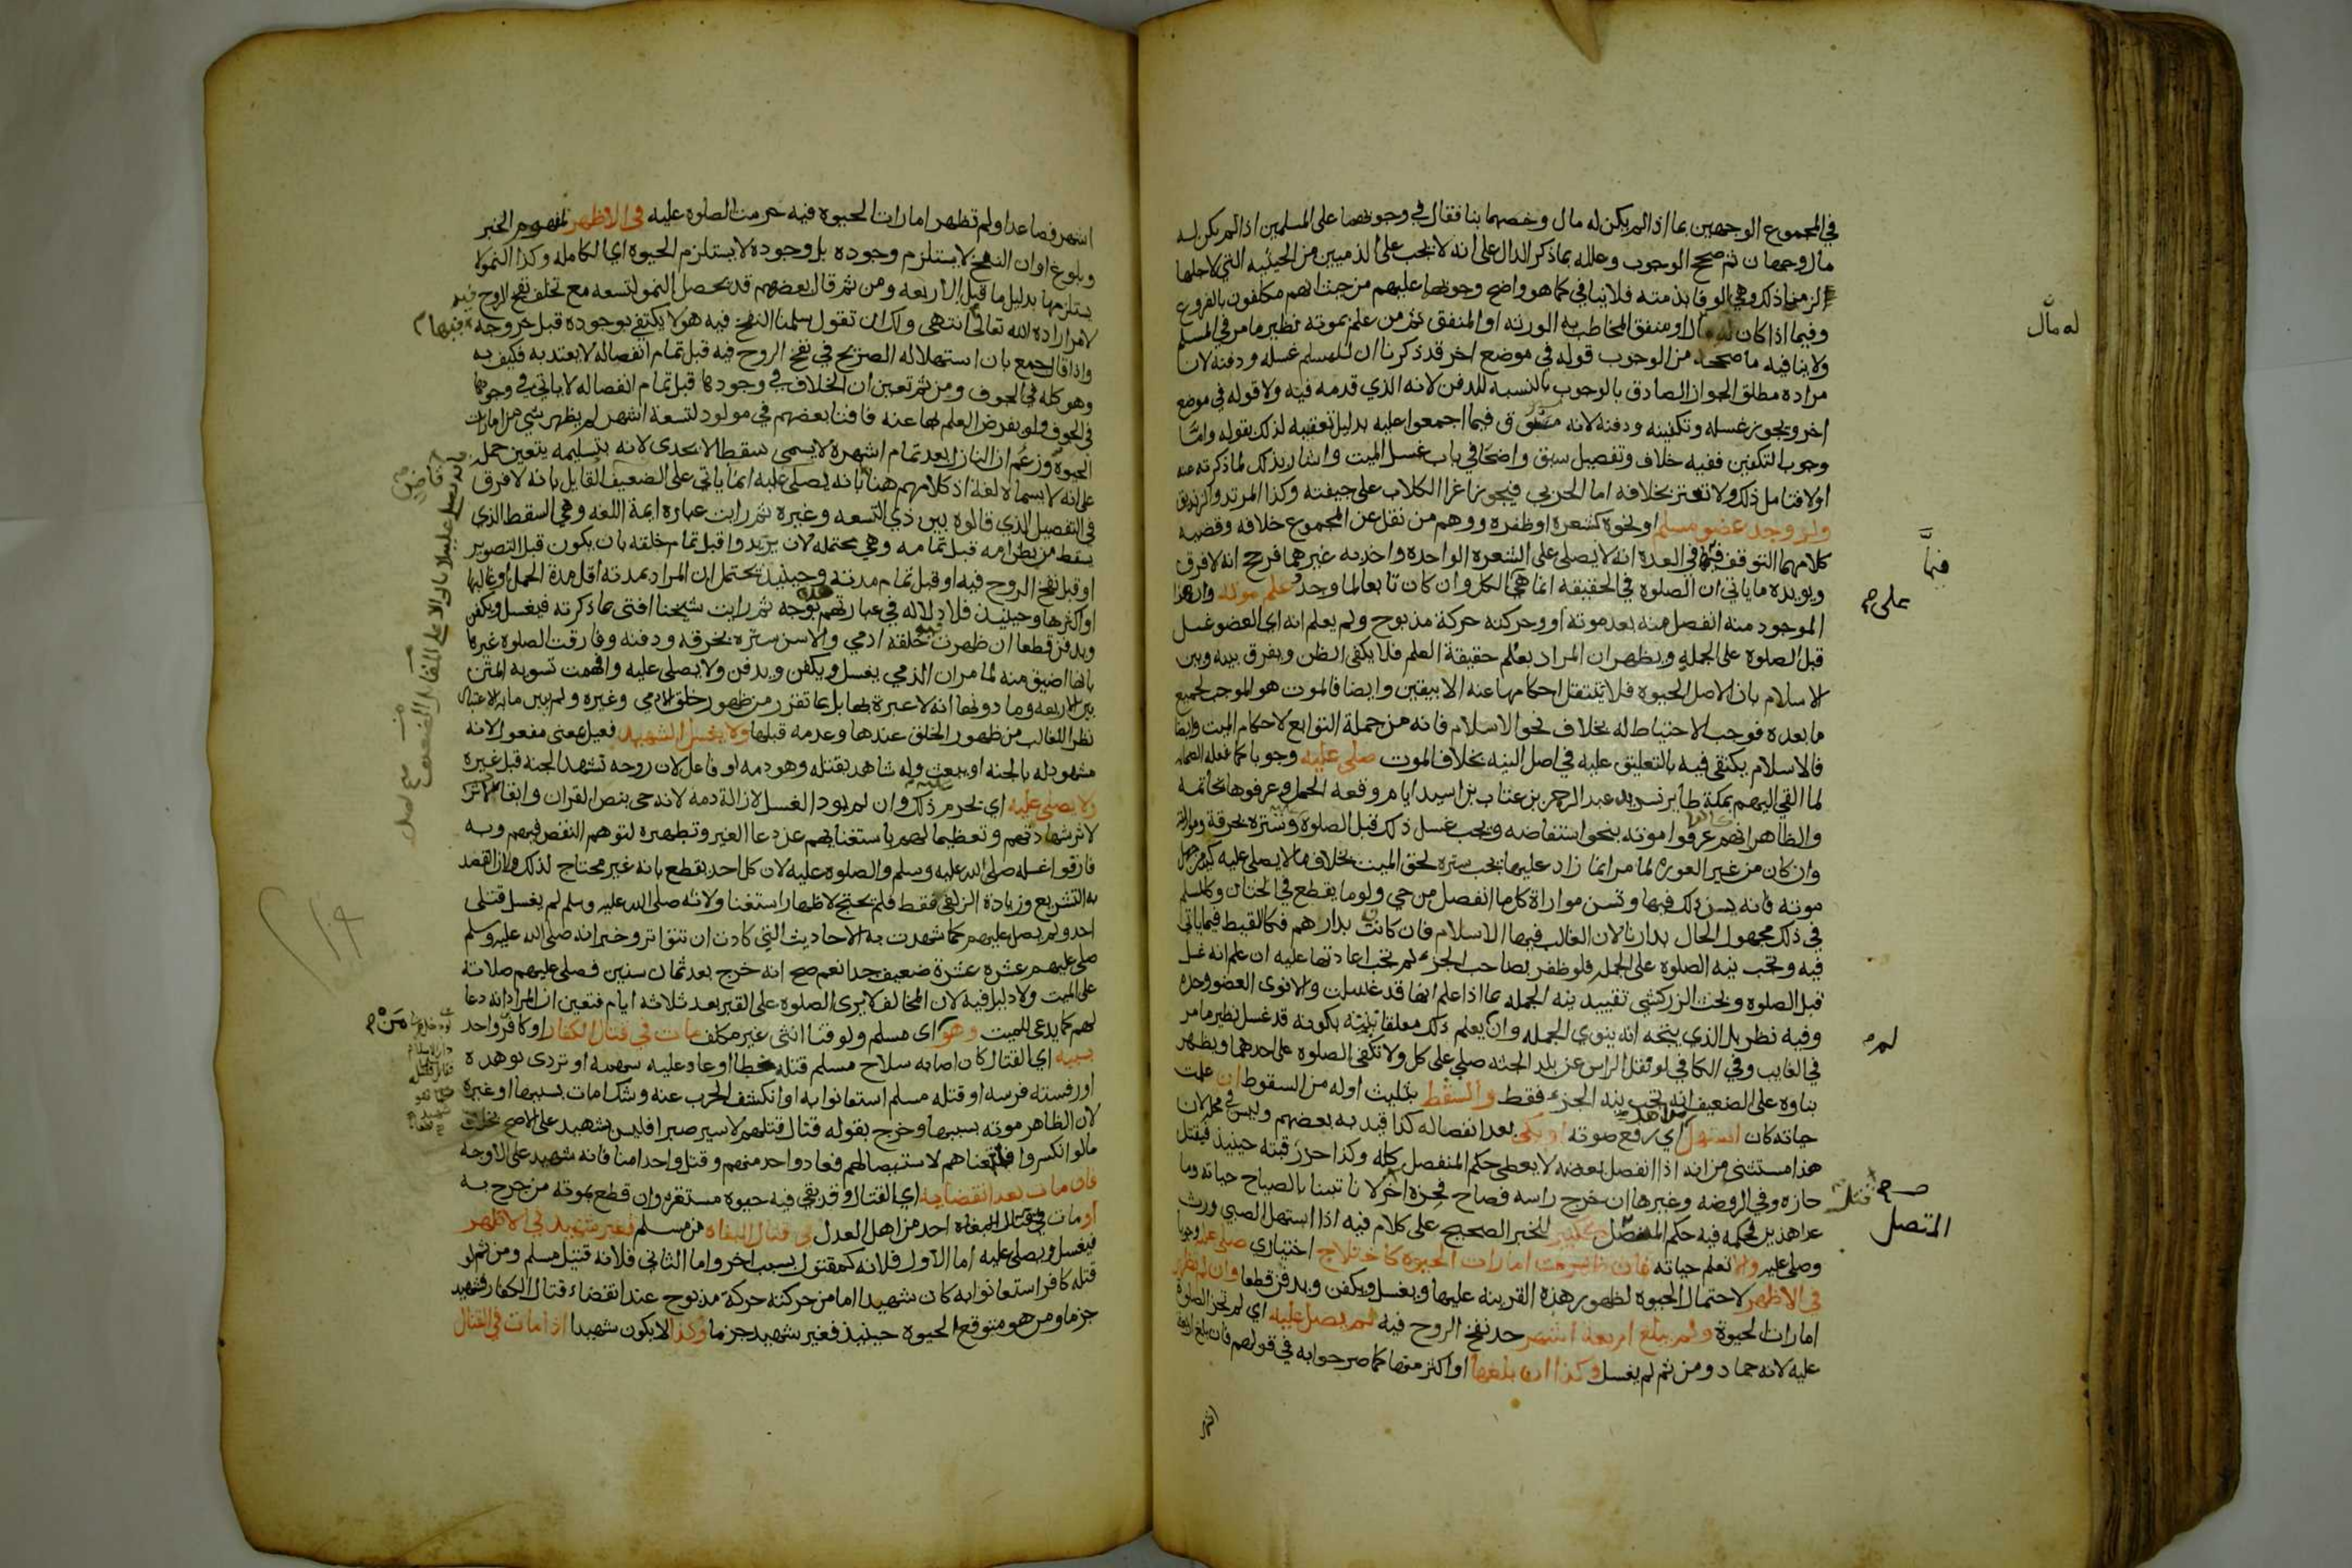 في المجموع الوجهين بما اذا لم يكن له مال وخصهما بنا فقال في وجوبهما على المسلمين اذا لم يكن له
مال وجهان ثم صحح الوجوب وعلله بما ذكر الدال على انه لا يجب على الذميين من الحيثيه التي لاجلها
الزمنا ذلك وهي الوفا بذمته فلا ينافي كما هو واضح وجوبهما عليهم من حيث انهم مكلفون بالفروع
وفيما اذا كان له مال او منفق المخاطب به الورثه او المنفق ثم من علم بموته نظير ما مر في المسلم
ولا ينافيه ما صححه من الوجوب قوله في موضع اخر قد ذكرنا ان للمسلم غسله ودفنه لان
مراده مطلق الجواز الصادق بالوجوب بالنسبه للدفن لانه الذي قدمه فيه ولا قوله في موضع
اخر ويجوز غسله وتكفينه ودفنه لانه مسوق فيما اجمعوا عليه بدليل تعقيبه لذلك بقوله واما
وجوب التكفين ففيه خلاف وتفصيل سبق واضحا في باب غسل الميت واشار بذلك لما ذكرته عنه
اولا فتامل ذلك ولا تغتر بخلافه اما الحربي فيجوز اغرا الكلاب على جيفته وكذا المرتد والزنديق
ولو وجد عضو مسلم او نحوه كشعره او ظفره ووهم من نقل عن المجموع خلافه وقضيه
كلامهما التوقف في العده انه لا يصلى على الشعره الواحده واخذ به غيرهما فرجح انه لا فرق
ويويده ما ياتي ان الصلوه في الحقيقه انما هي الكل وان كان تابعا لما وجد علم موته وان هذا
الموجود منه انفصل منه بعد موته او وحركته حركة مذبوح ولم يعلم انه اي العضو غسل
قبل الصلوه على الجمله ويظهر ان المراد بعلم حقيقة العلم فلا يكفي الظن ويفرق بينه وبين
الاسلام بان الاصل الحيوه فلا ينتقل احكامها عنه الا بيقين وايضا فالموت هو الموجب لجميع
ما بعده فوجب الاحتياط له بخلاف نحو الاسلام فانه من جملة التوابع لاحكام الميت وايضا
فالاسلام يكتفى فيه بالتعليق عليه في اصل النيه بخلاف الموت صلي عليه وجوبا كما فعله الصحابه
لما القي اليهم بمكة طاير نسر يد عبد الرحمن بن عتاب بن اسيد ايام وقعه الجمل وعرفوها بخاتمه
والظاهر انهم عرفوا موته بنحو استفاضه ويجب غسل ذلك قبل الصلوه وستره بخرقة ومواراته
وان كان من غير العوره لما مر انما زاد عليها يجب ستره لحق الميت بخلاف ما لا يصلى عليه
موته فانه يسن ذلك فيها وتسن مواراة كل ما انفصل من حي ولو ما يقطع في الختان وكالمسلم
في ذلك مجهول الحال بدارنا لان الغالب فيها الاسلام فان كانت بدارهم فكاللقيط فيما ياتي
فيه وتجب نيه الصلوه على الجمله فلو ظفر بصاحب الجزء لم تجب اعادتها عليه ان علم انه غسل
قبل الصلوه وبحث الزركشي تقييد نيه الجمله بما اذا علم انها قد غسلت والا نوى العضو وحده
وفيه نظر بل الذي يتجه انه ينوي الجمله وان يعلم ذلك معلقا نيته بكونه قد غسل نظير ما مر
في الغايب وفي الكافي لو نقل الراس عن بلد الجثه صلي على كل ولا تكفي الصلوه على احدهما ويظهر
بناوه على الضعيف انه تجب نيه الجزء فقط والسقط بتثليث اوله من السقوط ان علمت
حياته كان استهل اي رفع صوته او بكى بعد انفصاله كذا قيد به بعضهم وليس في محله لان
هذا مستثنى من انه اذا انفصل بعضه لا يعطى حكم المنفصل كله وكذا حز رقبته حينيذ فيقتل
حازه وفي الروضه وغيرها ان خرج راسه فصاح فحزه اخر لانا تيقنا بالصياح حياته وما
عدا هذين فحكمه فيه حكم المتصل ككبير للخبر الصحيح على كلام فيه اذا استهل الصبي ورث
وصلي عليه والا تعلم حياته فان ظهرت امارات الحيوه كاختلاج اختياري صلي عليه وجوبا
في الاظهر لاحتمال الحيوه لظهور هذه القرينه عليها ويغسل ويكفن ويدفن قطعا وان لم تظهر
امارات الحيوة ولم يبلغ اربعة اشهر حد نفخ الروح فيه لم يصل عليه اي لم تجز الصلوة
عليه لانه جماد ومن ثم لم يغسل وكذا ان بلغها او اكثر منها كما صرحوا به في قولهم فان بلغ اربعة
اشهر
له مال
فيما
على صح
لم
صح
المتصل
اشهر فصاعدا ولم تظهر امارات الحيوه فيه حرمت الصلوه عليه في الاظهر لمفهوم الخبر
وبلوغ اوان النفخ لا يستلزم وجوده بل وجوده لا يستلزم الحيوه اي الكامله وكذا النمو لا
يستلزمها بدليل ما قبل الاربعه ومن ثم قال بعضهم قد يحصل النمو لتسعه مع تخلف نفخ الروح فيه
لامر اراده الله تعالى انتهى ولك ان تقول سلمنا النفخ فيه هو لا يكتفى بوجوده قبل خروجه
واذا قال جمع بان استهلاله الصريح في نفخ الروح فيه قبل تمام انفصاله لا يعتد به فكيف به
وهو كله في الجوف ومن ثم تعين ان الخلاف في وجودها قبل تمام انفصاله لا ياتي في وجودها
في الجوف ولو بفرض العلم لها عنه فافتا بعضهم في مولود لتسعة اشهر لم يظهر شي من امارات
الحيوه وزعم ان النازل بعد تمام اشهره لا يسمى سقطا لا يجدي لانه بتسليمه يتعين حمله
على انه لا يسماه لغة اذ كلامهم هنا بانه يصلى عليه انما ياتي على الضعيف القايل بانه لا فرق
في التفصيل الذي قالوه بين ذي التسعه وغيره ثم رايت عباره ايمة اللغه وهي السقط الذي
يسقط من بطن امه قبل تمامه وهي محتمله لان يريدوا قبل تمام خلقه بان يكون قبل التصوير
او قبل نفخ الروح فيه او قبل تمام مدته وحينيذ يحتمل ان المراد بمدته اقل مدة الحمل او غالبها
او اكثرها وحينيذ فلا دلاله في عبارتهم بوجه ثم رايت شيخنا افتى بما ذكرته فيغسل ويكفن
ويدفن قطعا ان ظهرت خلقه ادمي والا سن ستره بخرقه ودفنه وفارقت الصلوه غيرها
بانها اضيق منه لما مر ان الذمي يغسل ويكفن ويدفن ولا يصلى عليه وافهمت تسويه المتن
بين الاربعه وما دونها انه لا عبرة بها بل بما تقرر من ظهور خلق الادمي وغيره
نظر اللغالب من ظهور الخلق عندها وعدمه قبلها ولا يغسل الشهيد فعيل بمعنى مفعول لانه
مشهود له بالجنه او يبعث وله شاهد بقتله وهو دمه او فاعل لان روحه تشهد الجنه قبل غيره
ولا يصلى عليه اي يحرم ذلك وان لم يود الغسل لازالة دمه لانه حي بنص القران وابقا
لاثر شهادتهم وتعظيما لهم باستغنايهم عن دعا الغير وتطهيره لتوهم النقص فيهم وبه
فارقوا غسله صلى الله عليه وسلم والصلوه عليه لان كل احد يقطع بانه غير محتاج لذلك ولان القصد
به التشريع وزيادة الزلفى فقط فلم يحتج لاظهار استغنا ولانه صلى الله عليه وسلم لم يغسل قتلى
احد ولم يصل عليهم كما شهدت به الاحاديث التي كادت ان تتواتر وخبر انه صلى الله عليه وسلم
صلى عليهم عشره عشرة ضعيف جدا نعم صح انه خرج بعد ثمان سنين فصلى عليهم صلاته
على الميت ولا دليل فيه لان المخالف لا يرى الصلوه على القبر بعد ثلاثه ايام فتعين ان المراد انه دعا
لهم كما يدعى للميت وهو اي مسلم ولو قنا انثى غير مكلف مات في قتال الكفار او كافر واحد
بسببه اي القتال كان اصابه سلاح مسلم قتله خطا او عاد عليه سهمه او تردى بوهده
او رفسته فرسه او قتله مسلم استعانوا به او انكشف الحرب عنه وشك امات بسببها او غيره
لان الظاهر موته بسببها وخرج بقوله قتال قتلهم لاسير صبرا فليس بشهيد على الاصح بخلاف
ما لو انكسروا فاتبعناهم لاستيصالهم فعاد واحد منهم وقتل واحدا منا فانه شهيد على الاوجه
فان مات بعد انقضايه اي القتال وقد بقي فيه حيوه مستقره وان قطع بموته من جرح به
او مات في قتال البغاه احد من اهل العدل في قتال البغاه من مسلم فغير شهيد في الاظهر
فيغسل ويصلى عليه اما الاول فلانه كمقتول بسبب اخر واما الثاني فلانه قتيل مسلم ومن ثم لو
قتله كافر استعانوا به كان شهيدا اما من حركته حركة مذبوح عند انقضاء قتال الكفار فشهيد
جزما ومن هو متوقع الحيوه حينيذ فغير شهيد جزما وكذا لا يكون شهيدا اذا مات في القتال
فيها
من